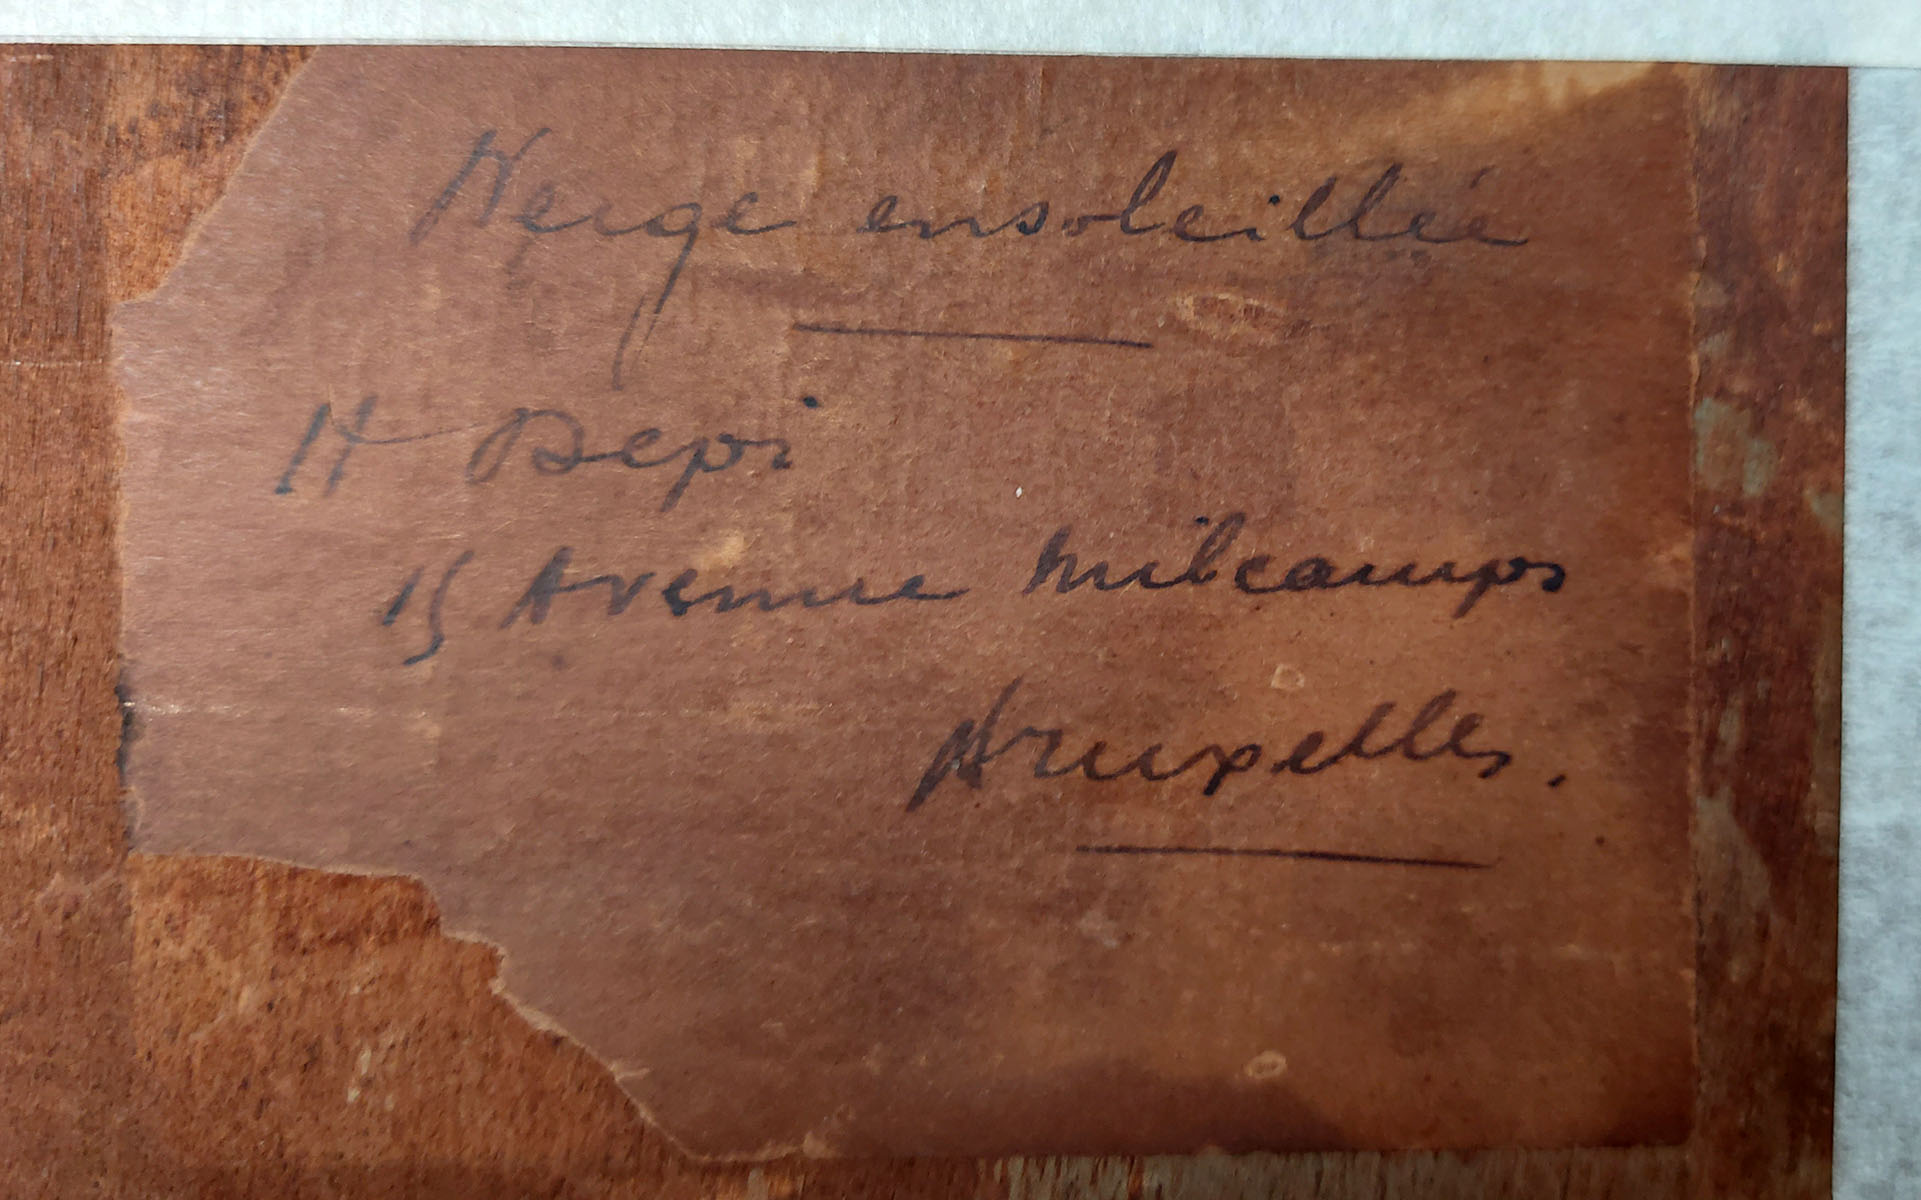 Neige ensoleillée
H Depi
15 Avenue Milcamps
Bruxelles.